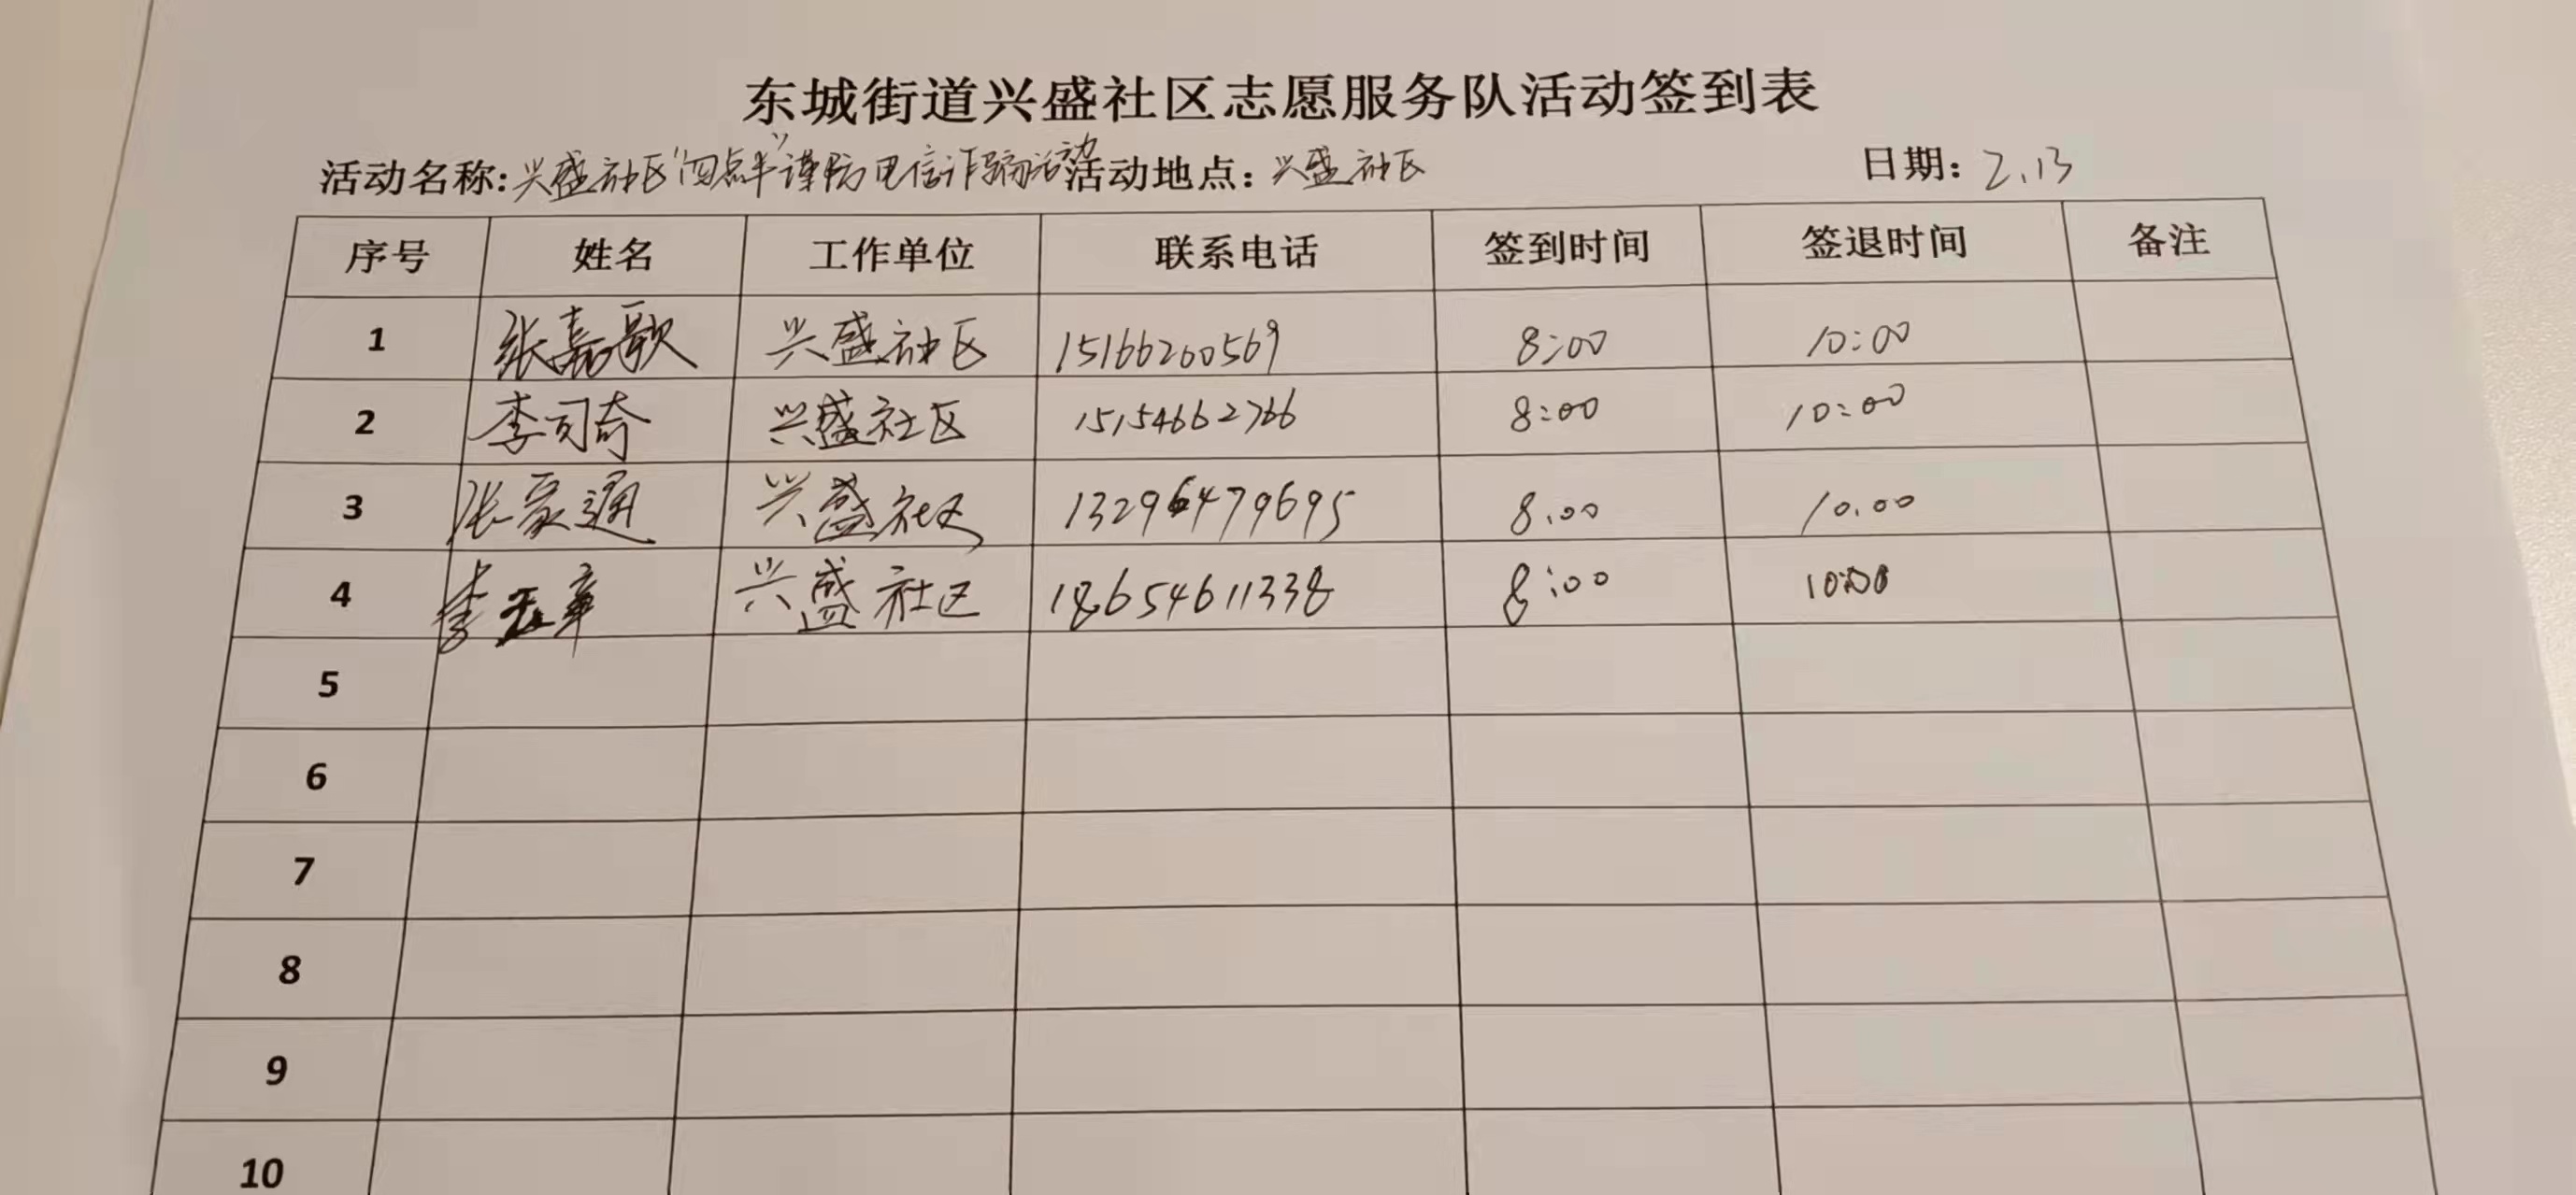 东城街道兴盛社区志愿服务队活动签到表
活动名称:兴盛社区“四点半”谨防电信诈骗活动 活动地点:兴盛社区 日期:2.13
序号 姓名 工作单位 联系电话 签到时间 签退时间 备注
1 张嘉歌 兴盛社区 15166260569 8:00 10:00
2 李司奇 兴盛社区 15154662766 8:00 10:00
3 张豪通 兴盛社区 13296479695 8.00 10.00
4 李 章 兴盛社区 18654611338 8:00 10:00
5
6
7
8
9
10